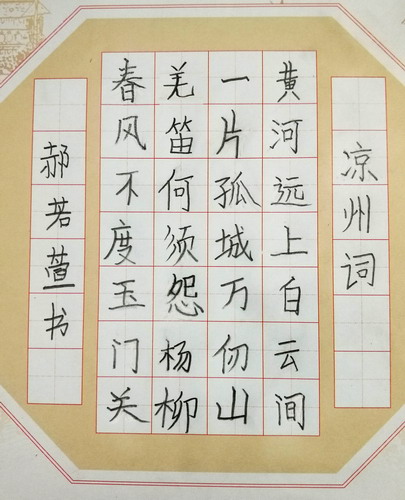 凉州词
黄河远上白云间
一片孤城万仞山
羌笛何须怨杨柳
春风不度玉门关
郝若萱书